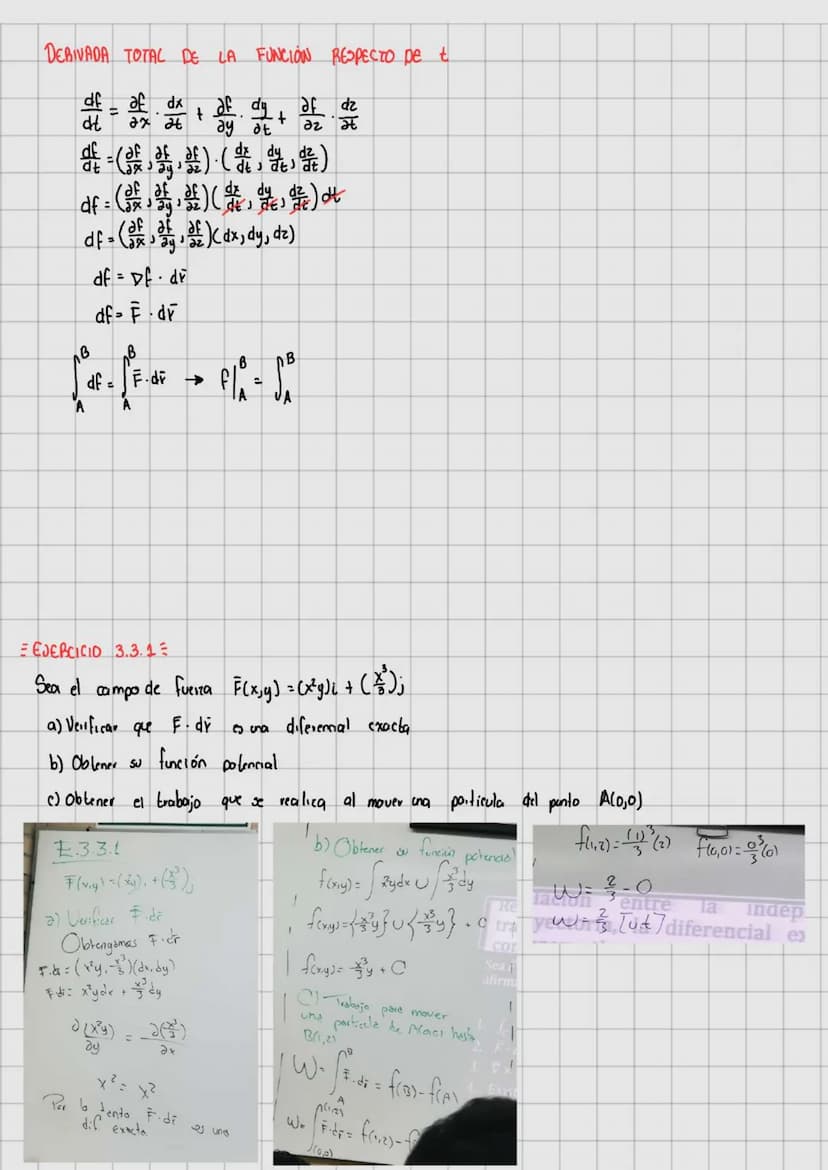 DERIVADA TOTAL DE LA FUNCIÓN RESPECTO DE t
df/dt = ∂f/∂x · dx/∂t + ∂f/∂y · dy/∂t + ∂f/∂z · dz/∂t
df/dt = (∂f/∂x, ∂f/∂y, ∂f/∂z) · (dx/dt, dy/dt, dz/dt)
df = (∂f/∂x, ∂f/∂y, ∂f/∂z)(dx/dt, dy/dt, dz/dt) dt
df = (∂f/∂x, ∂f/∂y, ∂f/∂z)(dx, dy, dz)
df = ∇f · dr̄
df = F̄ · dr̄
∫_A^B df = ∫_A^B F̄ · dr̄ → f|_A^B = ∫_A^B
= EJERCICIO 3.3.1 =
Sea el campo de fuerza F̄(x,y) = (x²y)i + (x³/3)j
a) Verificar que F̄ · dr̄ es una diferencial exacta
b) Obtener su función potencial
c) Obtener el trabajo que se realiza al mover una particula del punto A(0,0)
E.3.3.1
F̄(x,y) = (x²y)i + (x³/3)j
a) Verificar F̄ · dr̄
Obtengamos F̄ · dr̄
F̄ · dr̄ = (x²y, x³/3)(dx, dy)
F̄ · dr̄ = x²ydx + x³/3 dy
∂(x²y)/∂y = ∂(x³/3)/∂x
x² = x²
Por lo tanto F̄ · dr̄ es una
dif exacta
b) Obtener su función potencial
f(x,y) = ∫x²ydx ∪ ∫x³/3 dy
f(x,y) = {x³/3 y} ∪ {x³/3 y} + C
f(x,y) = x³/3 y + C
C) Trabajo para mover
una particula de A(0,0) hasta
B(1,2)
W = ∫_A^B F̄ · dr̄ = f(B) - f(A)
W = ∫_(0,0)^(1,2) F̄ · dr̄ = f(1,2) - f
f(1,2) = (1)³/3 (2) f(0,0) = 0³/3 (0)
W = 2/3 - 0
entre la indep
W = 2/3 [ut]
diferencial ex